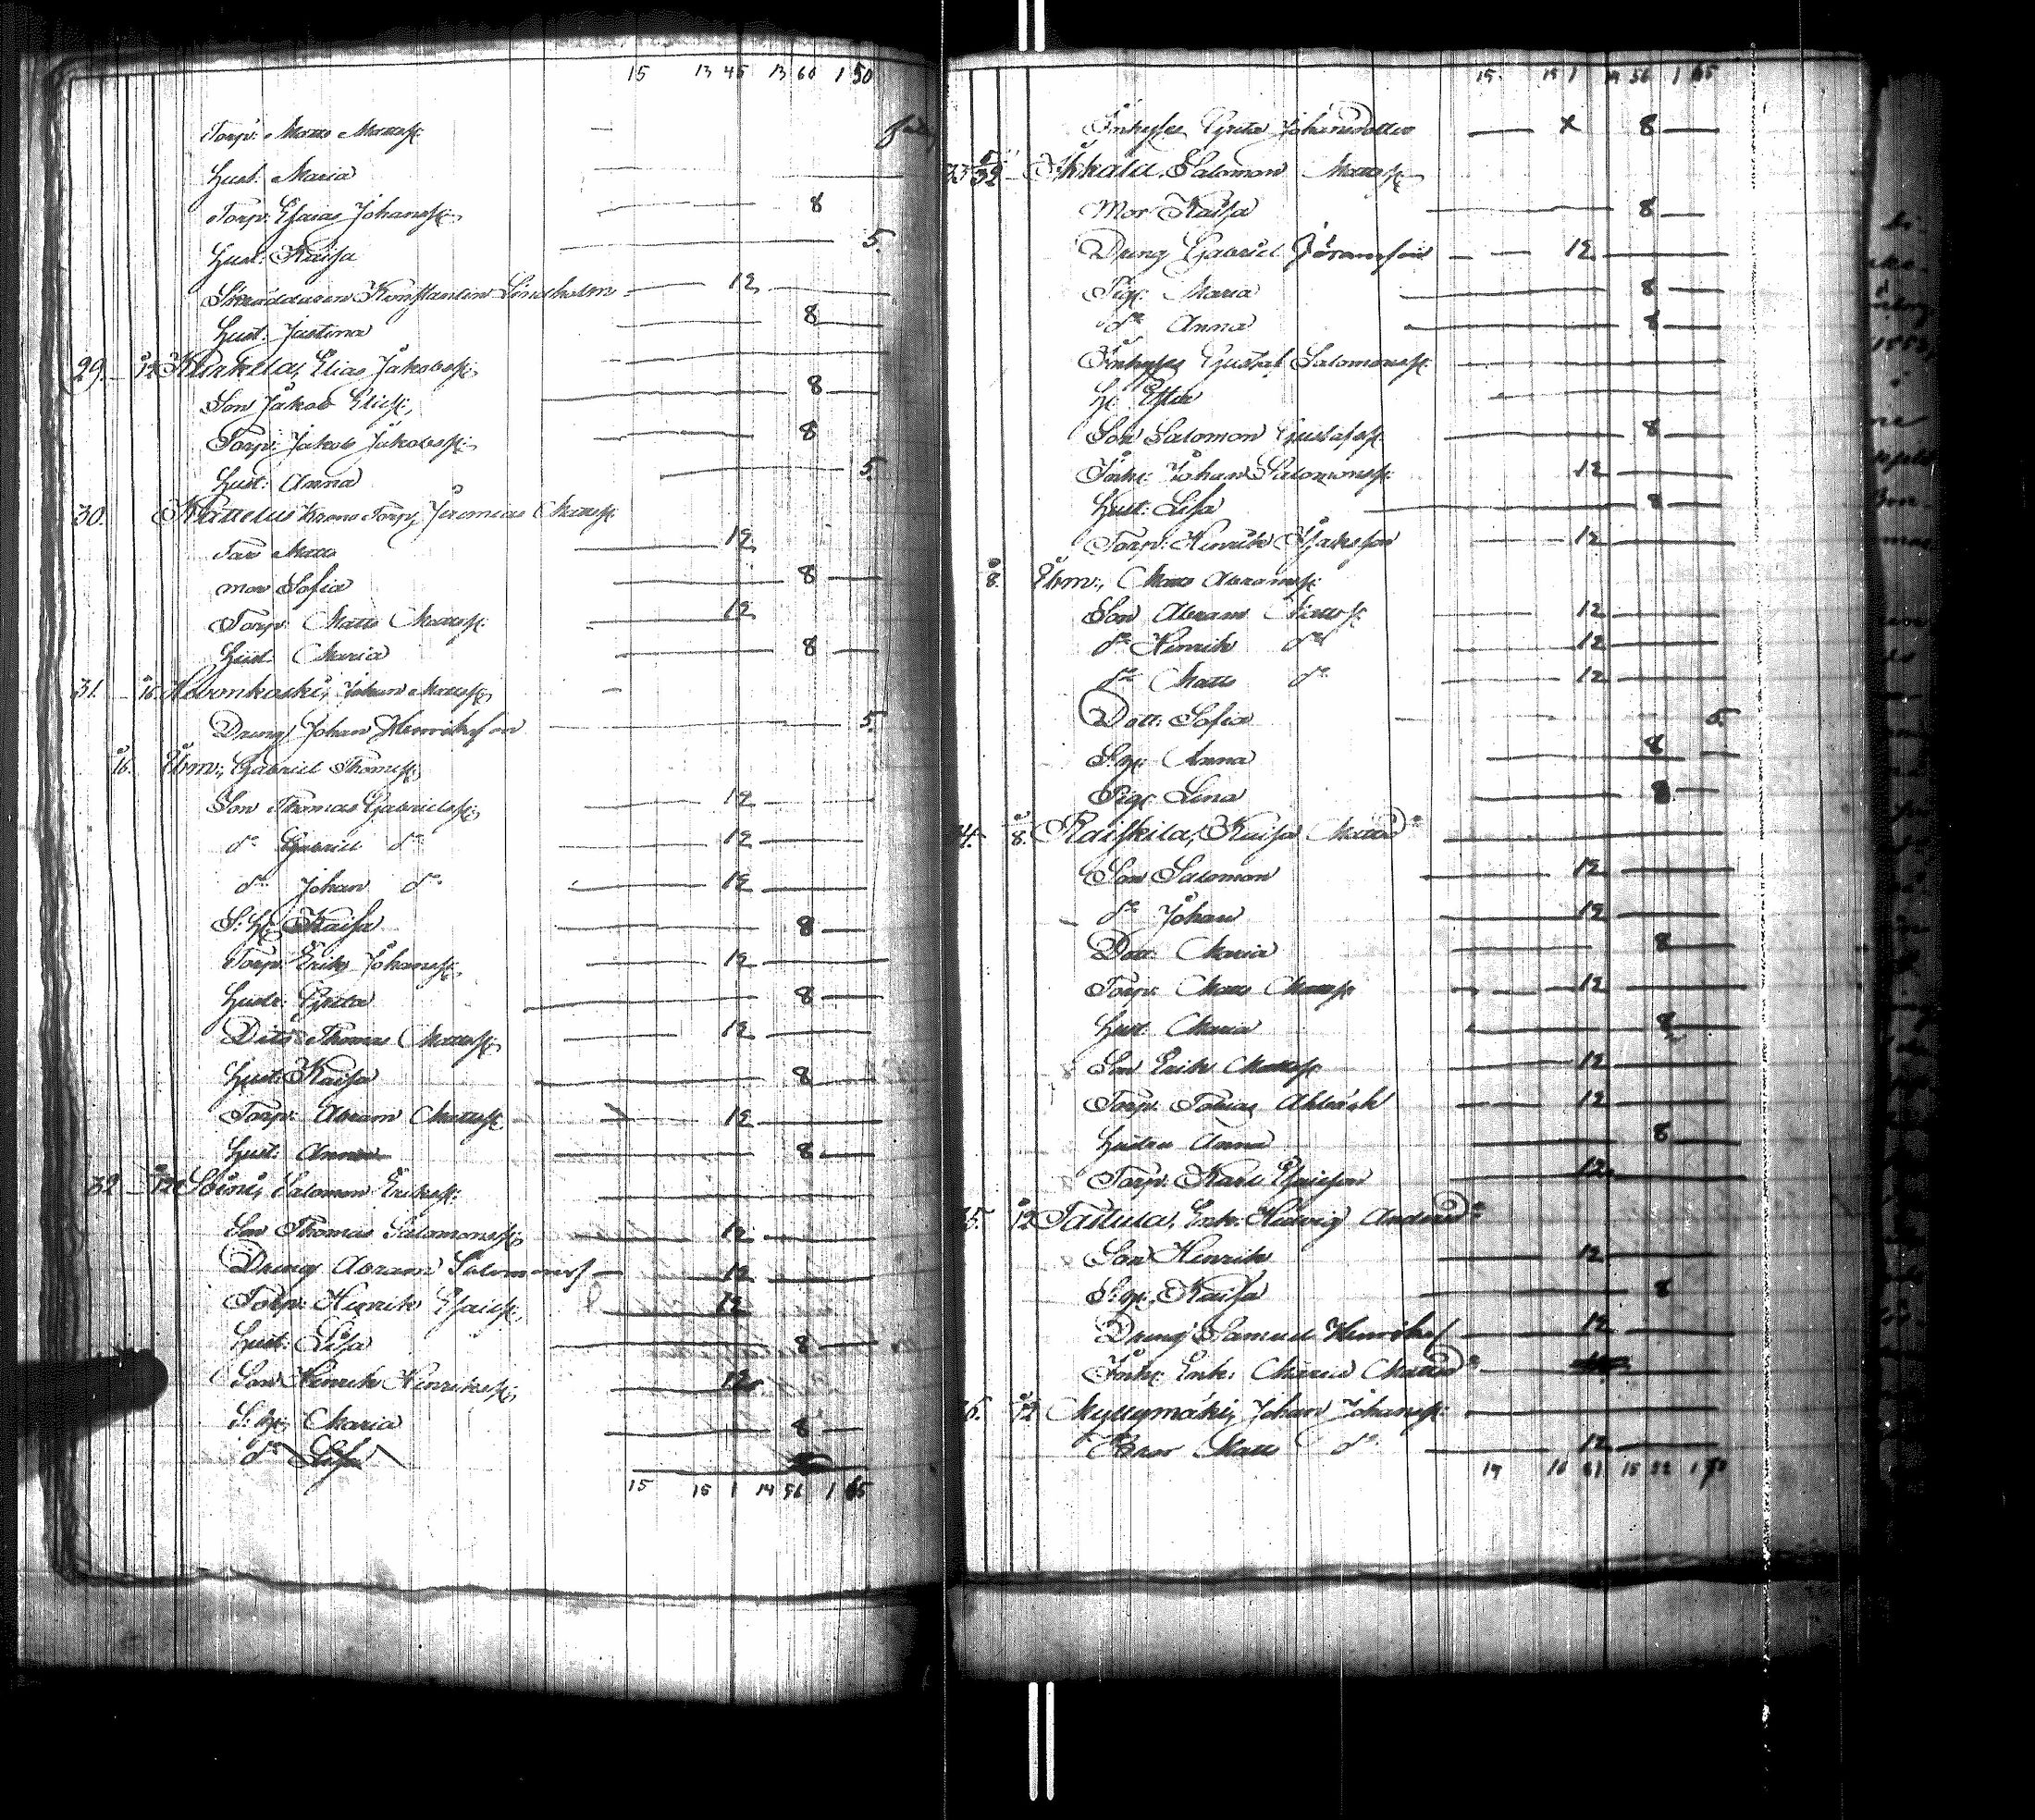 15 13 45 13 60 1 50
Torp: Matts Mattss:
Hust. Maria
Torp: Esaias Johanss: 8
Hust. Kaisa 5.
Skräddaren Konstantin Lindholm 12
Hust: Justina 8
29. Kurkela, Elias Jakobss:
Son Jakob Eliess: 8
Torp: Jakob Jakobss: 8
Hust: Anna 5.
30. Krono Torp, Jeremias Mattss:
Far Matts 12
mor Sofia 8
Torp: Matts Mattss: 12
Hust. Maria 8
31. 16. Johan Mattss:
Dreng Johan Henriksson 5.
16. Åbm:, Gabriel Thomess:
Son Thomas Gabrielss: 12
do Gabriel do 12
do Johan do 12
S: h: Kaisa 8
Torp: Erik Johanss: 12
Hustr: Greta 8
Dito Thomas Mattss: 12
Hust: Kaisa 8
Torp: Abram Mattss: 12
Hust: Anna 8
32 12 Soini, Salomon Erikss:
Son Thomas Salomonss: 12
Dreng Abram Salomons 12
Torp: Henrik Esaiess: 12
Hust: Lisa 8
Son Henrik Henrikss: 12
S: h: Maria 8
do Lisa
15 15 1 14 56 1 65
15 15 1 14 56 1 65
Inhyses Greta Johansdotter x 8
33 Salomon Mattss:
Mor Kaisa 8
Dreng Gabriel Göransson 12
Pig: Maria 8
do Anna 8
Inhyses Gustaf Salomonss:
H: Ester
Son Salomon Gustafss: 8
Inh: Johan Salomonss: 12
Hust: Lisa 8
Torp: Henrik Isaksson 12
8. Åbm:, Matts Abramss:
Son Abram Mattss: 12
do Henrik do 12
do Matts do 12
Dott: Sofia 5.
S: h: Anna 8
Pig: Lena 8
34. 8. Raiskila, Kaisa Mattsd:
Son Salomon 12
do Johan 12
Dott: Maria 8
Torp: Matts Mattss: 12
Hust: Maria 8
Son Erik Mattss: 12
Torp: Tobias 12
Hustru Anna 8
Torp: Karl Esaisson 12
35. 12 Tastula, Enk: Hedvig Andersd:
Son Henrik 12
S: h: Kaisa 8
Dreng Samuel Henriks 12
Inh: Enk: Maria Mattsd:
36. 12 Myllymäki, Johan Johanss:
Bror Matts do 12